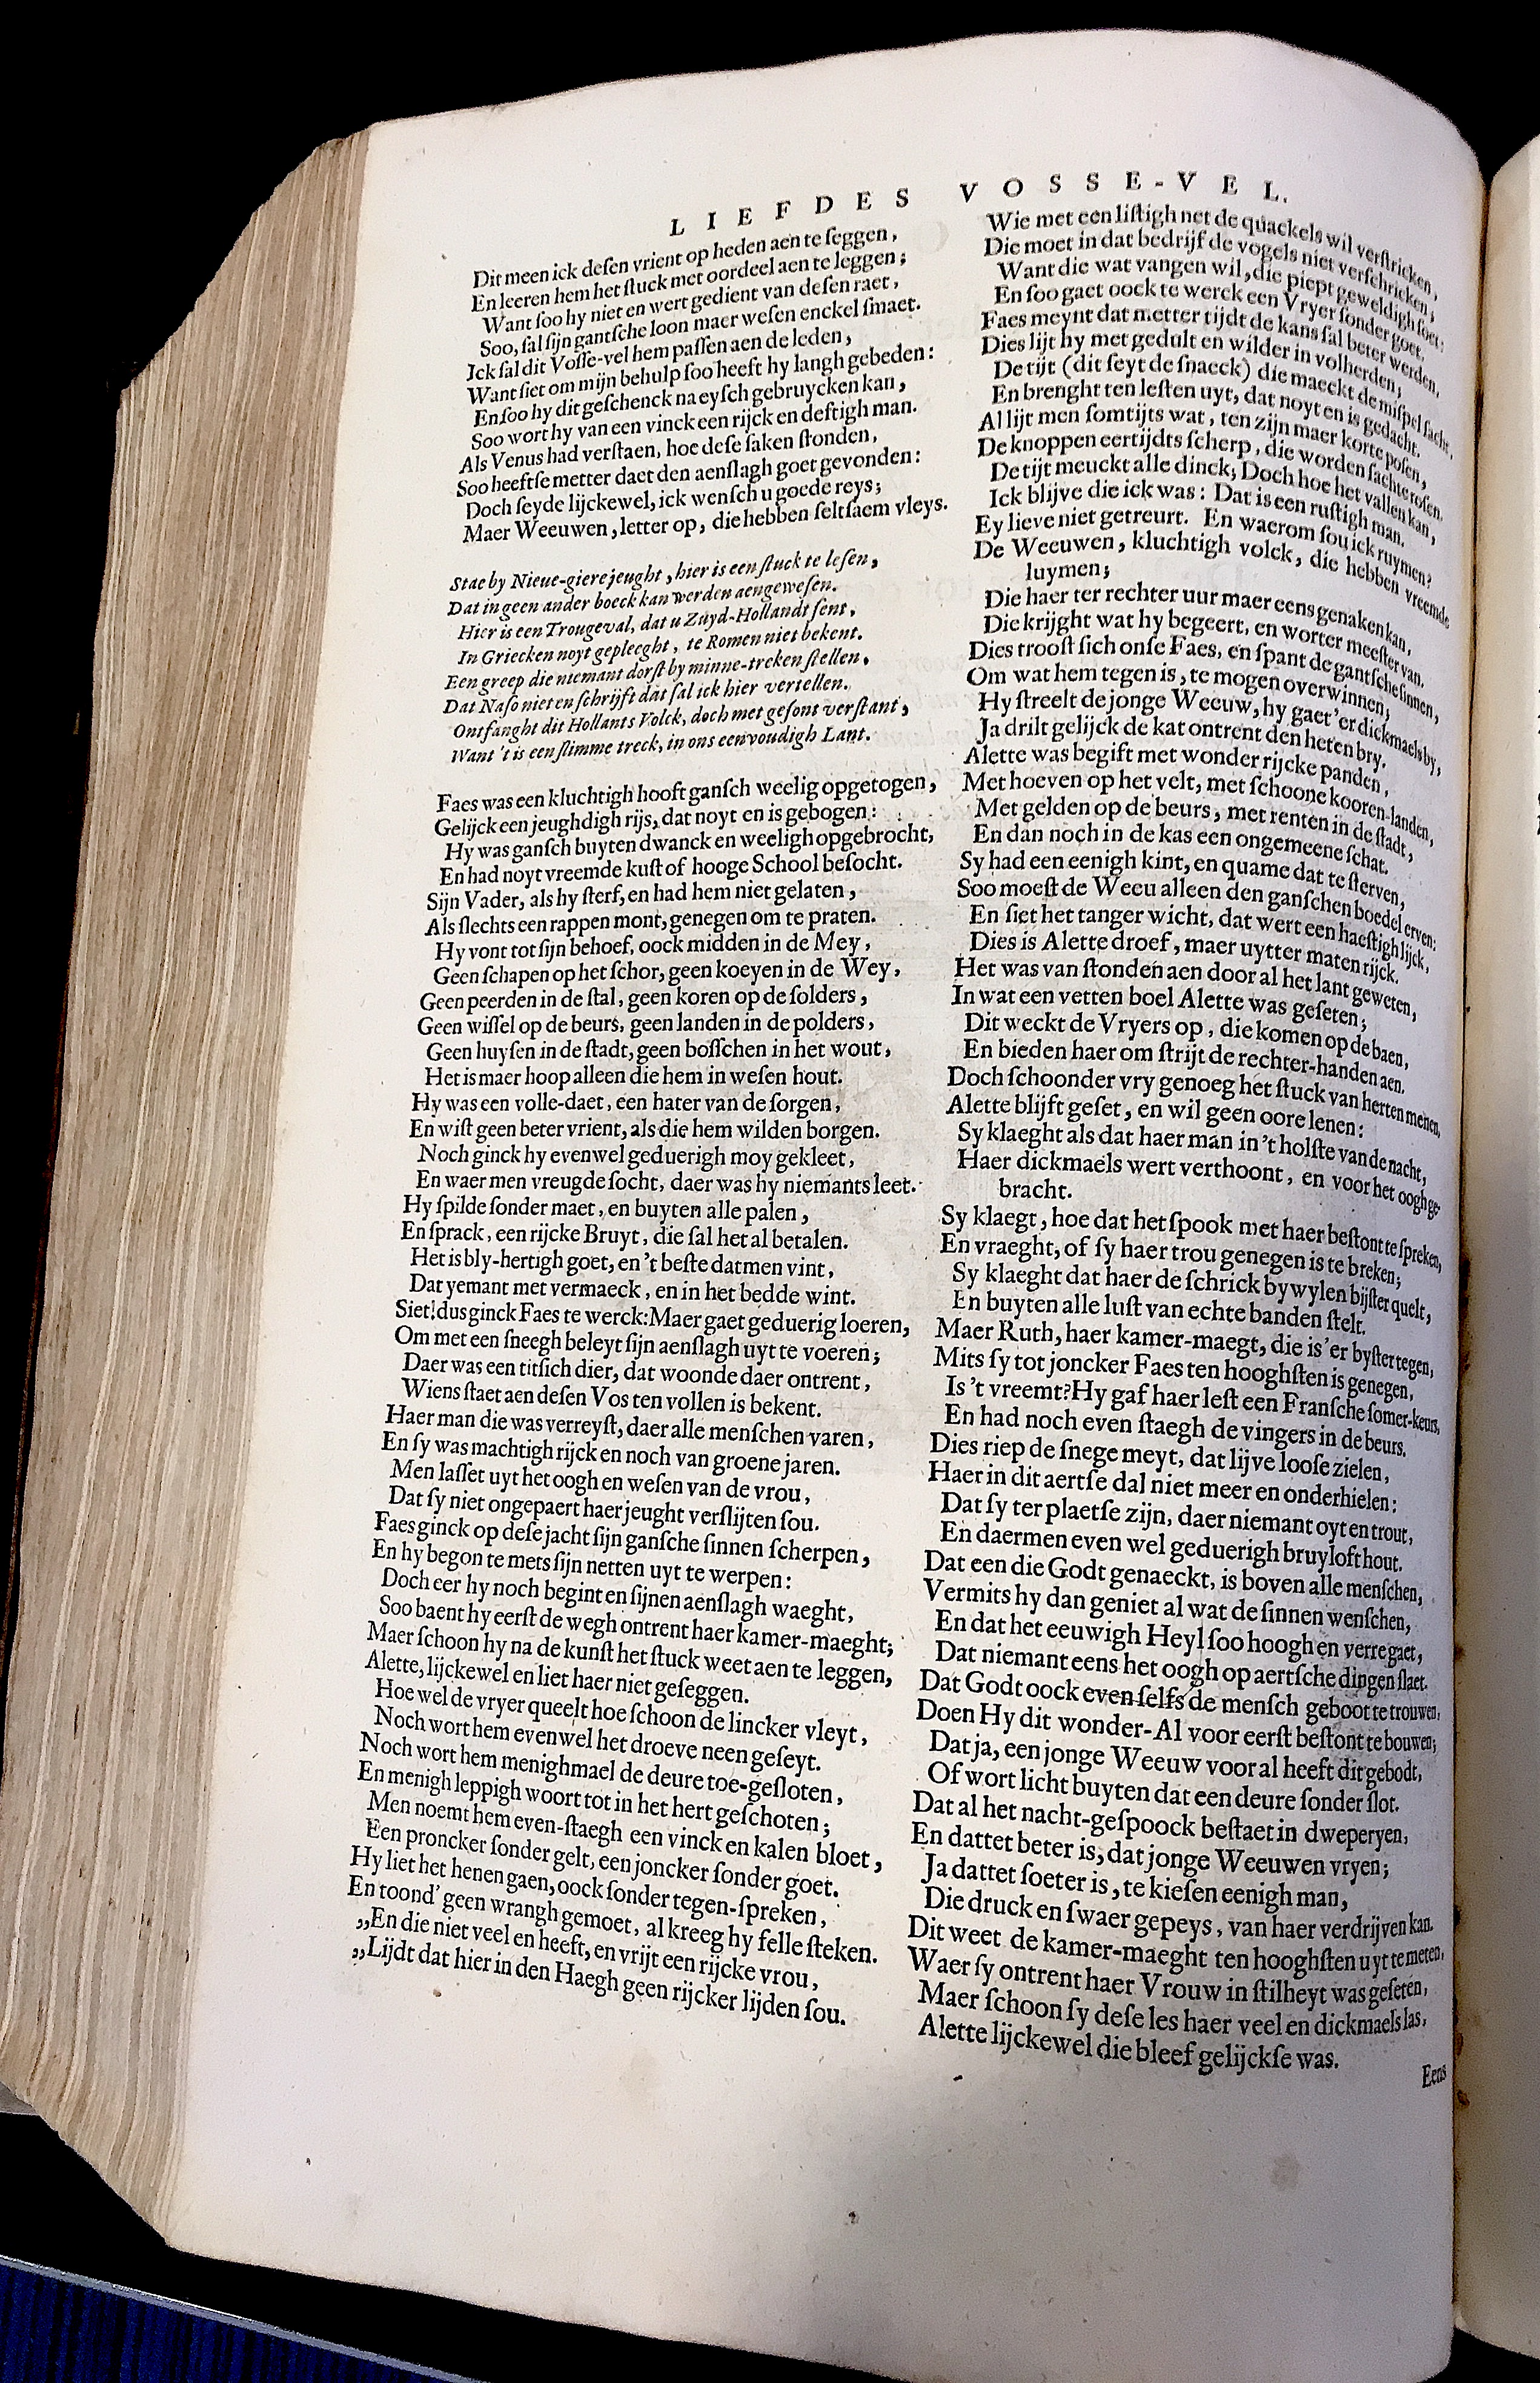 LIEFDES VOSSE-VEL.
Dit meen ick deſen vrient op heden aen te ſeggen,
En leeren hem het ſtuck met oordeel aen te leggen;
Want ſoo hy niet en wert gedient van deſen raet,
Soo, ſal ſijn gantſche loon maer weſen enckel ſmaet.
Ick ſal dit Voſſe-vel hem paſſen aen de leden,
Want ſiet om mijn behulp ſoo heeft hy langh gebeden:
En ſoo hy dit geſchenck na eyſch gebruycken kan,
Soo wort hy van een vinck een rijck en deftigh man.
Als Venus had verſtaen, hoe deſe ſaken ſtonden,
Soo heeftſe metter daet den aenſlagh goet gevonden:
Doch ſeyde lijckewel, ick wenſch u goede reys;
Maer Weeuwen, letter op, die hebben ſeltſaem vleys.
Stae by Nieue-giere jeught, hier is een ſtuck te leſen,
Dat in geen ander boeck kan werden aengeweſen.
Hier is een Trougeval, dat u Zuyd-Hollandt ſent,
In Griecken noyt gepleeght, te Romen niet bekent.
Een greep die niemant dorſt by minne-treken ſtellen,
Dat Naſo niet en ſchrijft dat ſal ick hier vertellen.
Ontfanght dit Hollants Volck, doch met geſont verſtant,
Want 't is een ſlimme treck, in ons eenvoudigh Lant.
Faes was een kluchtigh hooft ganſch weelig opgetogen,
Gelijck een jeughdigh rijs, dat noyt en is gebogen:
Hy was ganſch buyten dwanck en weeligh opgebrocht,
En had noyt vreemde kuſt of hooge School beſocht.
Sijn Vader, als hy ſterf, en had hem niet gelaten,
Als ſlechts een rappen mont, genegen om te praten.
Hy vont tot ſijn behoef, oock midden in de Mey,
Geen ſchapen op het ſchor, geen koeyen in de Wey,
Geen peerden in de ſtal, geen koren op de ſolders,
Geen wiſſel op de beurs, geen landen in de polders,
Geen huyſen in de ſtadt, geen boſſchen in het wout,
Het is maer hoop alleen die hem in weſen hout.
Hy was een volle-daet, een hater van de ſorgen,
En wiſt geen beter vrient, als die hem wilden borgen.
Noch ginck hy evenwel geduerigh moy gekleet,
En waer men vreugde ſocht, daer was hy niemants leet.
Hy ſpilde ſonder maet, en buyten alle palen,
En ſprack, een rijcke Bruyt, die ſal het al betalen.
Het is bly-hertigh goet, en 't beſte datmen vint,
Dat yemant met vermaeck, en in het bedde wint.
Siet! dus ginck Faes te werck: Maer gaet geduerig loeren,
Om met een ſneegh beleyt ſijn aenſlagh uyt te voeren;
Daer was een titſich dier, dat woonde daer ontrent,
Wiens ſtaet aen deſen Vos ten vollen is bekent.
Haer man die was verreyſt, daer alle menſchen varen,
En ſy was machtigh rijck en noch van groene jaren.
Men laſſet uyt het oogh en weſen van de vrou,
Dat ſy niet ongepaert haer jeught verſlijten ſou.
Faes ginck op deſe jacht ſijn ganſche ſinnen ſcherpen,
En hy begon te mets ſijn netten uyt te werpen:
Doch eer hy noch begint en ſijnen aenſlagh waeght,
Soo baent hy eerſt de wegh ontrent haer kamer-maeght;
Maer ſchoon hy na de kunſt het ſtuck weet aen te leggen,
Alette, lijckewel en liet haer niet geſeggen.
Hoe wel de vryer queelt hoe ſchoon de lincker vleyt,
Noch wort hem evenwel het droeve neen geſeyt.
Noch wort hem menighmael de deure toe-geſloten,
En menigh leppigh woort tot in het hert geſchoten;
Men noemt hem even-ſtaegh een vinck en kalen bloet,
Een proncker ſonder gelt, een joncker ſonder goet.
Hy liet het henen gaen, oock ſonder tegen-ſpreken,
En toond' geen wrangh gemoet, al kreegh hy felle ſteken.
„En die niet veel en heeft, en vrijt een rijcke vrou,
„Lijdt dat hier in den Haegh geen rijcker lijden ſou.
Wie met een liſtigh net de quackels wil verſtricken,
Die moet in dat bedrijf de vogels niet verſchricken;
Want die wat vangen wil, die piept geweldigh ſoet:
En ſoo gaet oock te werck een Vryer ſonder goet.
Faes meynt dat metter tijdt de kans ſal beter werden,
Dies lijt hy met gedult en wilder in volherden;
De tijt (dit ſeyt de ſnaeck) die maeckt de miſpel ſacht,
En brenght ten leſten uyt, dat noyt en is gedacht.
Al lijt men ſomtijts wat, ten zijn maer korte poſen,
De knoppen eertijdts ſcherp, die worden ſachte roſen.
De tijt meuckt alle dinck; Doch hoe het vallen kan,
Ick blijve die ick was: Dat is een ruſtigh man.
Ey lieve niet getreurt. En waerom ſou ick ruymen?
De Weeuwen, kluchtigh volck, die hebben vreemde
luymen;
Die haer ter rechter uur maer eens genaken kan,
Die krijght wat hy begeert, en worter meeſter van.
Dies trooſt ſich onſe Faes, en ſpant de gantſche ſinnen,
Om wat hem tegen is, te mogen overwinnen;
Hy ſtreelt de jonge Weeuw, hy gaet'er dickmaels by,
Ja drilt gelijck de kat ontrent den heten bry.
Alette was begift met wonder rijcke panden,
Met hoeven op het velt, met ſchoone kooren-landen,
Met gelden op de beurs, met renten in de ſtadt,
En dan noch in de kas een ongemeene ſchat.
Sy had een eenigh kint, en quame dat te ſterven,
Soo moeſt de Weeu alleen den ganſchen boedel erven:
En ſiet het tanger wicht, dat wert een haeſtigh lijck,
Dies is Alette droef, maer uytter maten rijck.
Het was van ſtonden aen door al het lant geweten,
In wat een vetten boel Alette was geſeten;
Dit weckt de Vryers op, die komen op de baen,
En bieden haer om ſtrijt de rechter-handen aen.
Doch ſchoonder vry genoeg het ſtuck van herten menen,
Alette blijft geſet, en wil geen oore lenen:
Sy klaeght als dat haer man in 't holſte van de nacht,
Haer dickmaels wert verthoont, en voor het oogh ge-
bracht.
Sy klaegt, hoe dat het ſpook met haer beſtont te ſpreken,
En vraeght, of ſy haer trou genegen is te breken;
Sy klaeght dat haer de ſchrick bywylen bijſter quelt,
En buyten alle luſt van echte banden ſtelt.
Maer Ruth, haer kamer-maegt, die is'er byſter tegen,
Mits ſy tot joncker Faes ten hooghſten is genegen,
Is 't vreemt? Hy gaf haer leſt een Franſche ſomer-keurs,
En had noch even ſtaegh de vingers in de beurs.
Dies riep de ſnege meyt, dat lijve looſe zielen,
Haer in dit aertſe dal niet meer en onderhielen:
Dat ſy ter plaetſe zijn, daer niemant oyt en trout,
En daermen even wel geduerigh bruyloft hout.
Dat een die Godt genaeckt, is boven alle menſchen,
Vermits hy dan geniet al wat de ſinnen wenſchen,
En dat het eeuwigh Heyl ſoo hoogh en verre gaet,
Dat niemant eens het oogh op aertſche dingen ſlaet.
Dat Godt oock even-ſelfs de menſch geboot te trouwen,
Doen Hy dit wonder-Al voor eerſt beſtont te bouwen;
Dat ja, een jonge Weeuw voor al heeft dit gebodt,
Of wort licht buyten dat een deure ſonder ſlot.
Dat al het nacht-geſpoock beſtaet in dweperyen,
En dattet beter is, dat jonge Weeuwen vryen;
Ja dattet ſoeter is, te kieſen eenigh man,
Die druck en ſwaer gepeys, van haer verdrijven kan.
Dit weet de kamer-maeght ten hooghſten uyt te meten,
Waer ſy ontrent haer Vrouw in ſtilheyt was geſeten,
Maer ſchoon ſy deſe les haer veel en dickmaels las,
Alette lijckewel die bleef gelijckſe was.
Eens